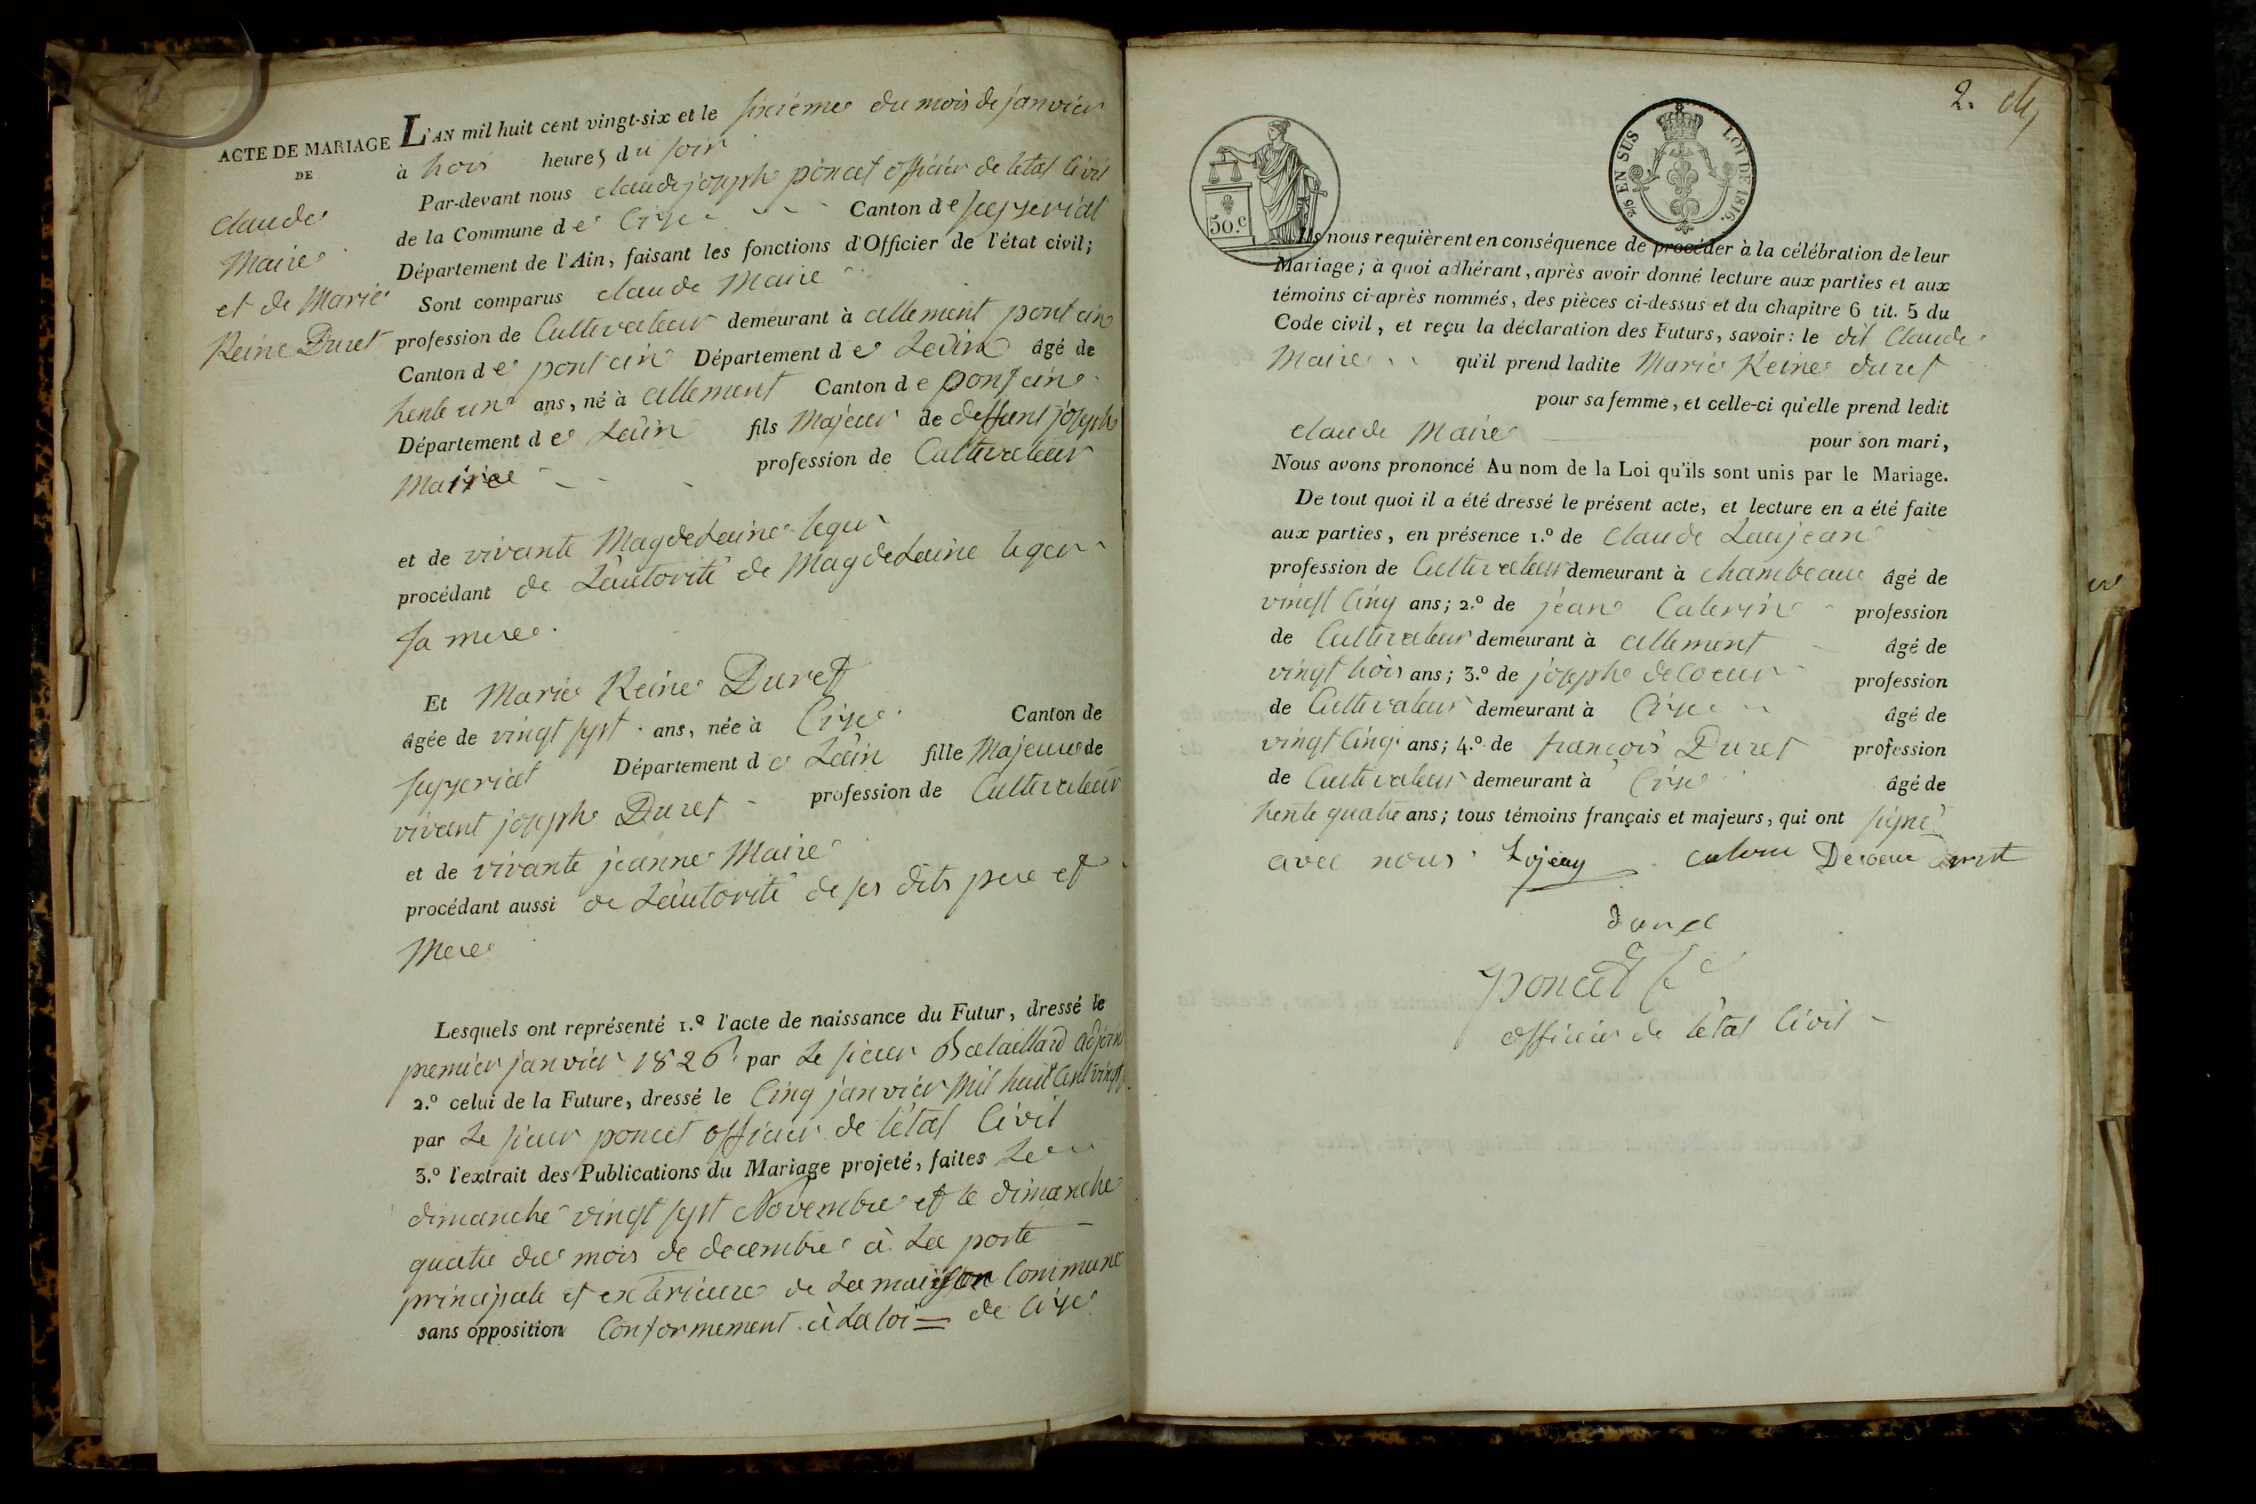 ACTE DE MARIAGE
DE
Claude
Maire
et de Marie
Reine Duret
L'AN mil huit cent vingt-six et le sixième du mois de janvier
à trois heures du soir
Par-devant nous claude joseph poncet officier de létat Civil
de la Commune de Cize Canton de
Département de l'Ain, faisant les fonctions d'Officier de l'état civil;
Sont comparus claude Maire
profession de Cultivateur demeurant à allement pont ain
Canton de pont ain Département de Ledin âgé de
trente un ans, né à allement Canton de pont ain
Département de Lain fils Majeur de deffunt joseph
Maire profession de Cultivateur
et de vivante MagdeLaine leger
procédant de Lautorité de MagdeLaine leger
sa mere
Et Marie Reine Duret
âgée de vingt sept ans, née à Cize Canton de
Département de Lain fille Majeure de
vivant joseph Duret profession de Cultivateur
et de vivante jeanne Maire
procédant aussi de Lautorité de ses dits pere et
Mere
Lesquels ont représenté 1.º l'acte de naissance du Futur, dressé le
premier janvier 1826 par Le sieur adjoin
2.º celui de la Future, dressé le Cinq janvier Mil huit Cent vingt
par Le sieur poncet officier de létat Civil
3.º l'extrait des Publications du Mariage projeté, faites Le
dimanche vingt sept Novembre et le dimanche
quatre du mois de decembre à La porte
principale et exterieure de La maison Commune
sans opposition Conformement à La loi = de Cize
2.
50.c
2/5 EN SUS LOI DE 1816.
Ils nous requièrent en conséquence de procéder à la célébration de leur
Mariage; à quoi adhérant, après avoir donné lecture aux parties et aux
témoins ci-après nommés, des pièces ci-dessus et du chapitre 6 tit. 5 du
Code civil, et reçu la déclaration des Futurs, savoir: le dit Claude
Maire qu'il prend ladite Marie Reine duret
pour sa femme, et celle-ci qu'elle prend ledit
claude Maire pour son mari,
Nous avons prononcé Au nom de la Loi qu'ils sont unis par le Mariage.
De tout quoi il a été dressé le présent acte, et lecture en a été faite
aux parties, en présence 1.º de Claude Laujean
profession de Cultivateur demeurant à chambeau âgé de
vingt Cinq ans; 2.º de jean Caterin profession
de Cultivateur demeurant à allement âgé de
vingt trois ans; 3.º de joseph decoeur profession
de Cultivateur demeurant à Cize âgé de
vingt Cinq ans; 4.º de francois Duret profession
de Cultivateur demeurant à Cize âgé de
trente quatre ans; tous témoins français et majeurs, qui ont signé
avec nous Lojeay Decoeur
poncet
officier de létat Civil